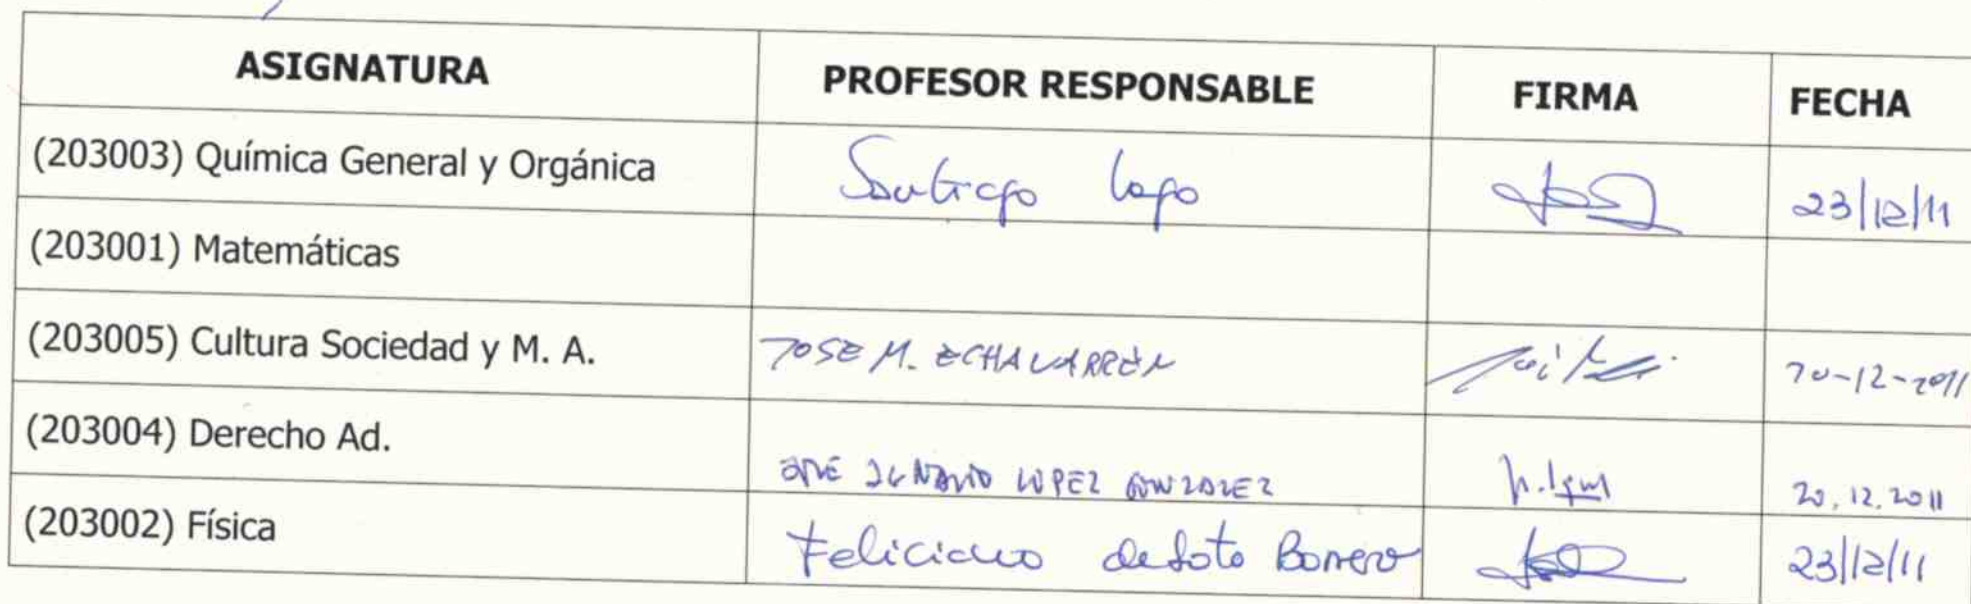 ASIGNATURA PROFESOR RESPONSABLE FIRMA FECHA
(203003) Química General y Orgánica Santiago Lago 23/12/11
(203001) Matemáticas
(203005) Cultura Sociedad y M. A. JOSE M. ECHAVARREN 20-12-2011
(203004) Derecho Ad. JOSÉ IGNACIO LOPEZ GONZALEZ 20.12.2011
(203002) Física Feliciano de Soto Borrero 23/12/11